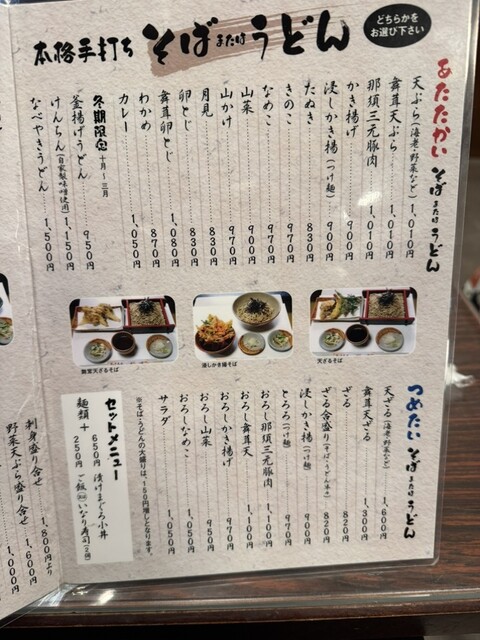 本格手打ち そば または うどん
どちらかを
お選び下さい
あたたかい そば または うどん
天ぷら（海老・野菜など） 1,010円
舞茸天ぷら 1,010円
那須三元豚肉 1,010円
かき揚げ 900円
浸しかき揚（つけ麺） 900円
たぬき 830円
きのこ 970円
なめこ 970円
山菜 900円
山かけ 970円
月見 830円
卵とじ 830円
舞茸卵とじ 1,080円
わかめ 870円
カレー 1,050円
冬期限定 十月〜三月
釜揚げうどん 950円
けんちん（自家製味噌使用） 1,150円
なべやきうどん 1,500円
舞茸天ざるそば
浸しかき揚そば
天ざるそば
つめたい そば または うどん
天ざる（海老・野菜など） 1,600円
舞茸天ざる 1,300円
ざる 820円
ざる合盛り（そば・うどん半々） 820円
浸しかき揚（つけ麺） 900円
とろろ（つけ麺） 970円
おろし那須三元豚肉 1,100円
おろし舞茸天 1,100円
おろしかき揚げ 970円
おろし山菜 950円
おろしなめこ 1,050円
サラダ 1,050円
※そば・うどんの大盛りは、150円増しとなります。
セットメニュー
麺類＋ 650円 漬けまぐろ小丼
250円 ご飯 又は いなり寿司（2個）
刺身盛り合せ 1,800円より
野菜天ぷら盛り合せ 1,600円
1,000円